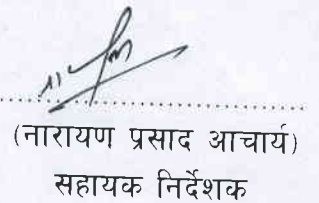 (नारायण प्रसाद आचार्य)
सहायक निर्देशक